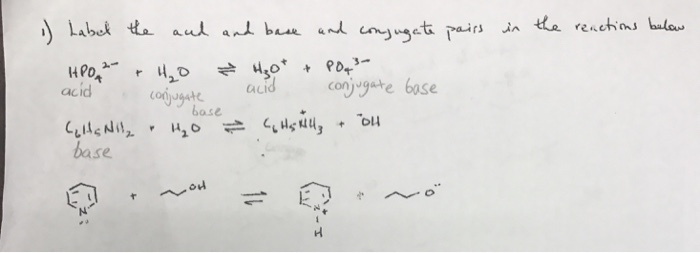 1) Label the acid and base and conjugate pairs in the reactions below
HPO₄²⁻ + H₂O ⇌ H₃O⁺ + PO₄³⁻
acid conjugate base acid conjugate base
C₆H₅NH₂ + H₂O ⇌ C₆H₅N⁺H₃ + ⁻OH
base
N + OH ⇌ N⁺ H + O